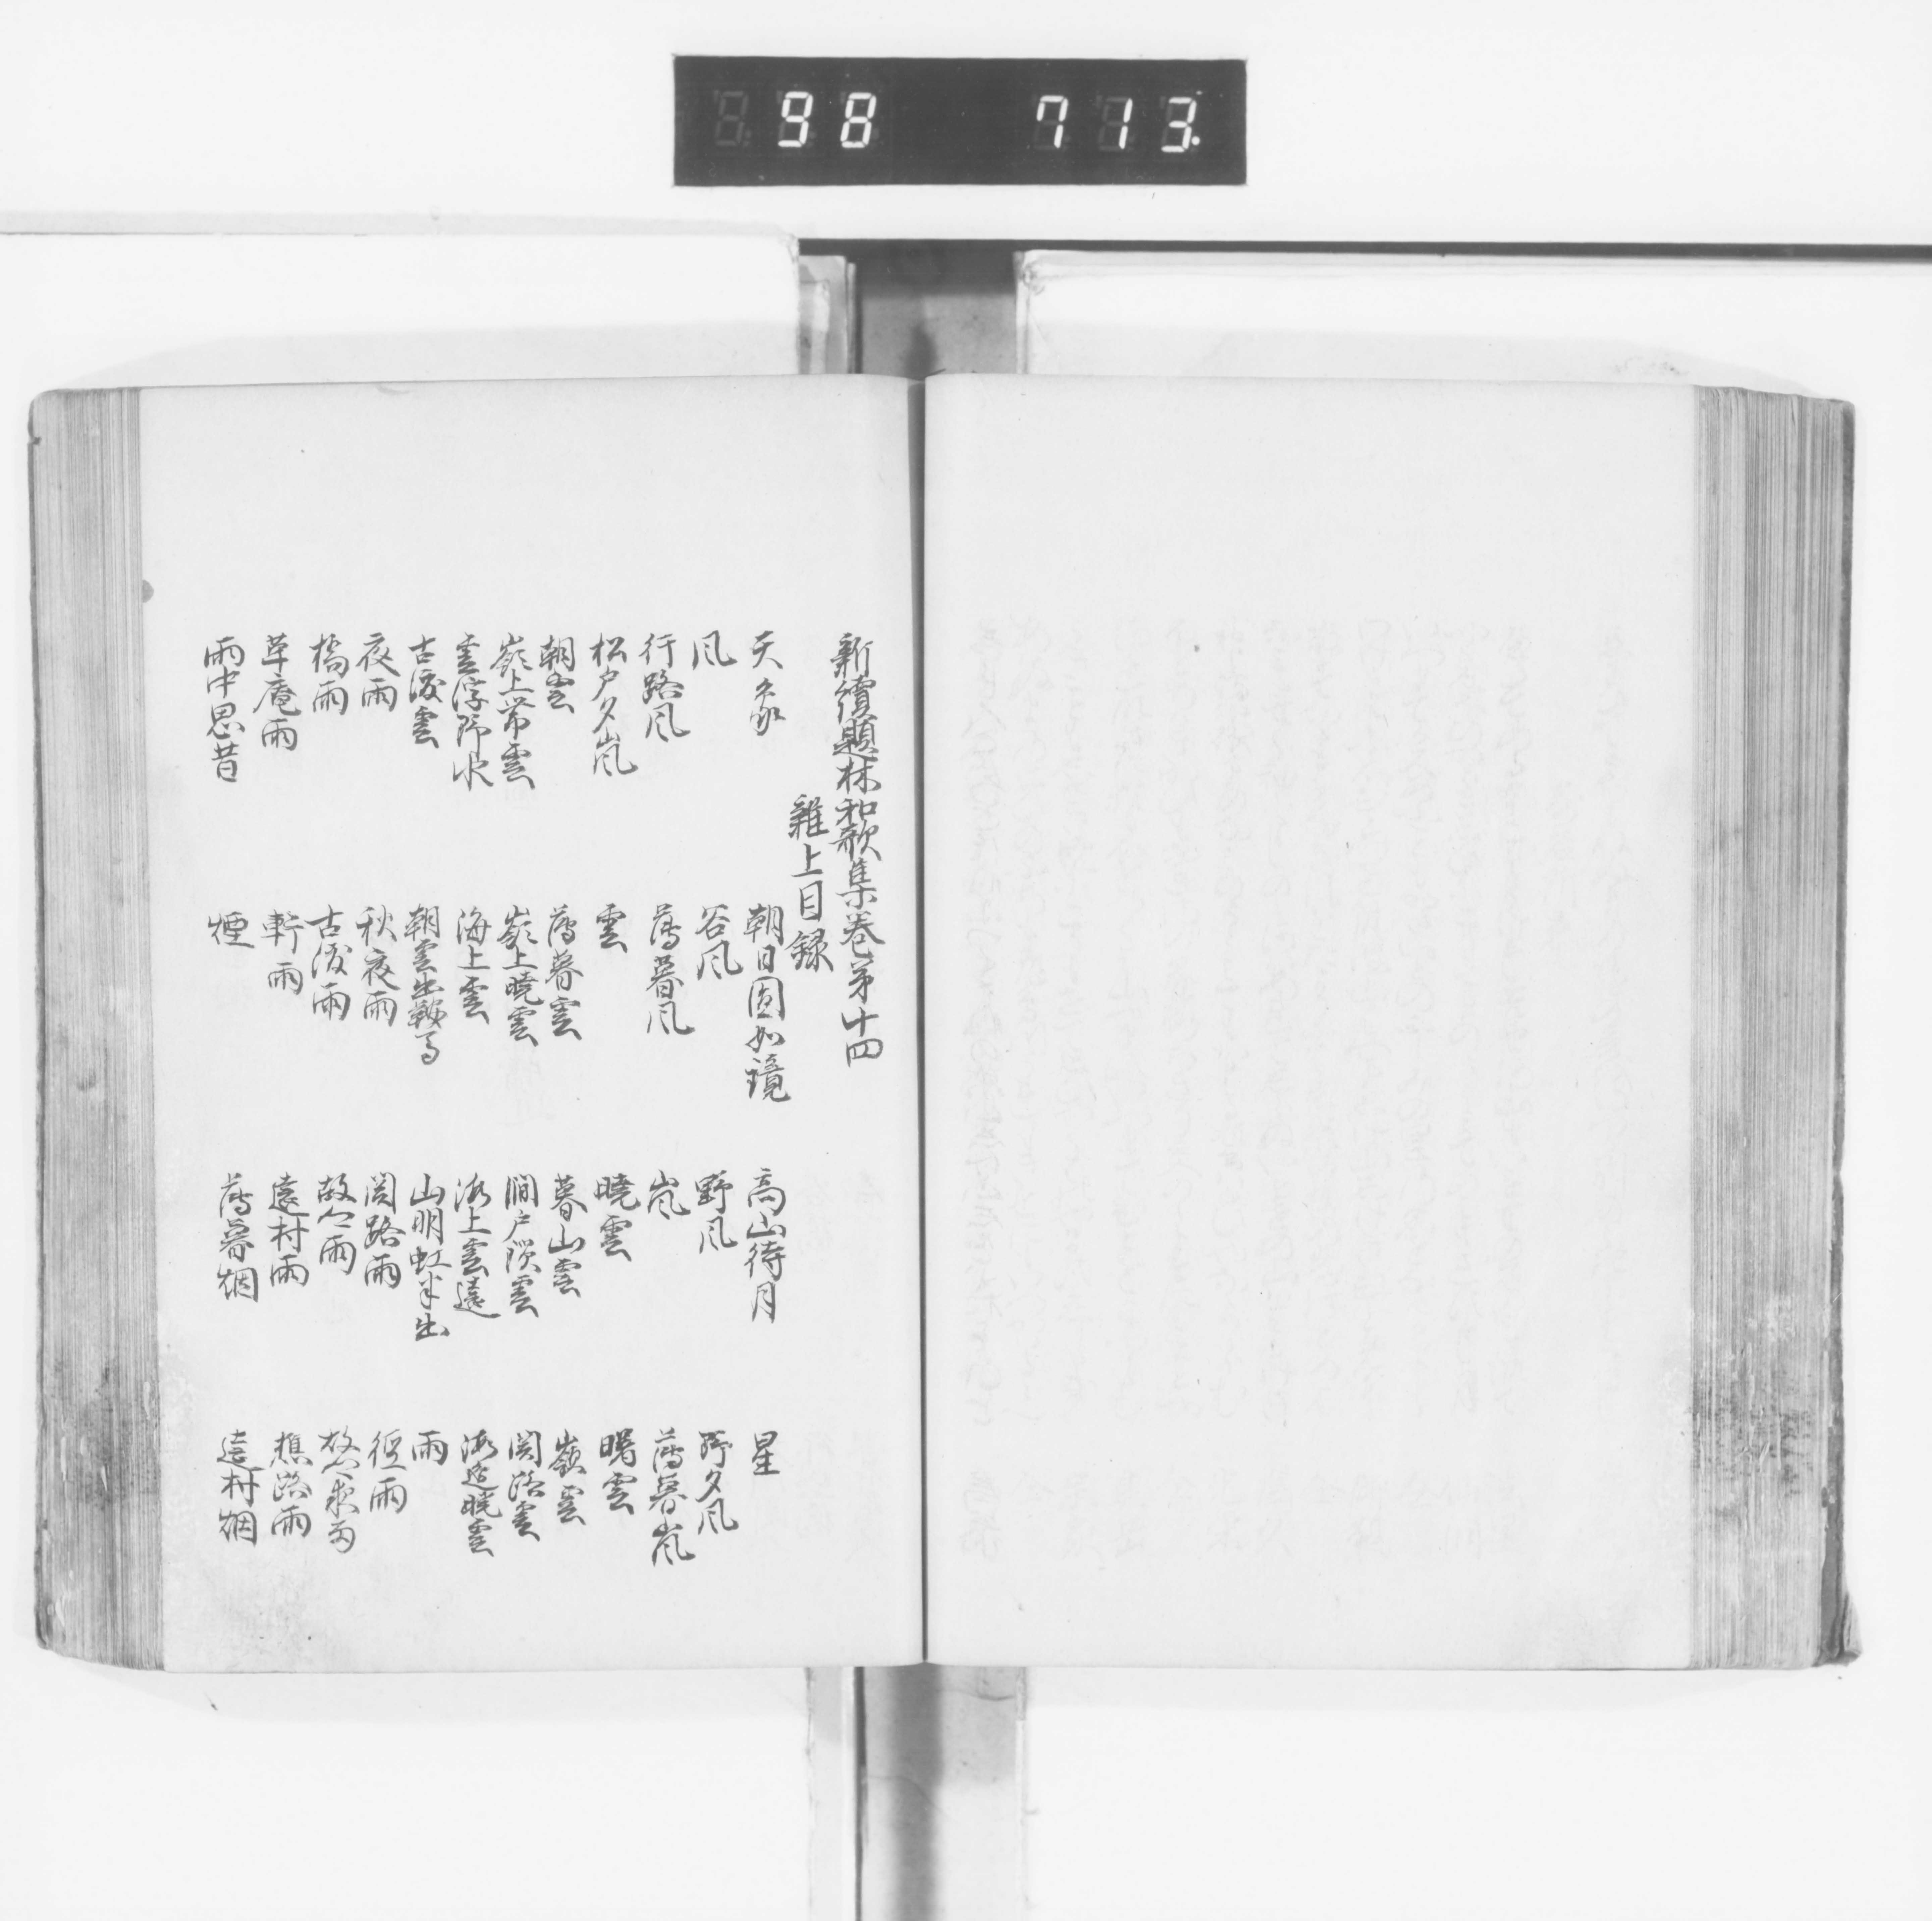 98 713
新續題林和歌集巻第十四
雜上目録
天象 朝日圓如鏡 高山待月 星
風 谷風 野風 野夕風
行路風 薄暮風 嵐 薄暮嵐
松戸夕嵐 雲 曉雲 曙雲
朝雲 薄暮雲 暮山雲 嶺雲
嶺上帯雲 嶺上曉雲 澗戸隠雲 関路雲
雲浮野水 海上雲 海上雲遠 海邊曉雲
古渡雲 朝雲出馬 山明虹半出 雨
夜雨 秋夜雨 関路雨 径雨
橋雨 古渡雨 故郷雨 故郷夜雨
草庵雨 軒雨 遠村雨 樵路雨
雨中思昔 煙 薄暮烟 遠村烟